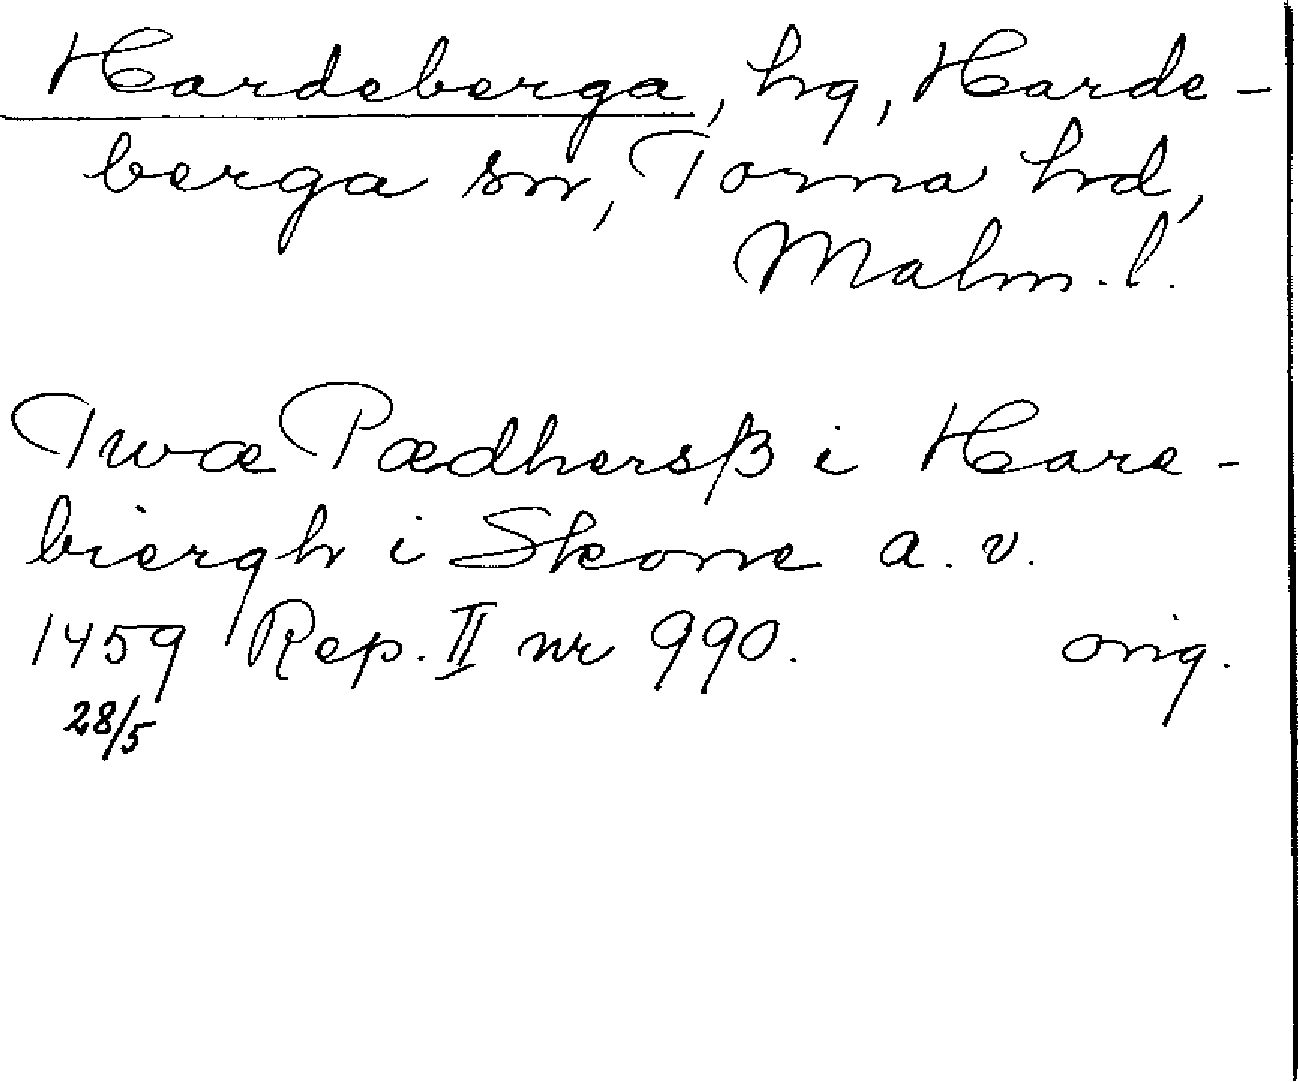 Hardeberga, hg, Harde-
berga sn, Torna hd,
Malm. l.
Twæ Pædhersß i Hare-
biergh i Skone a. v.
1459 Rep. II nr 990. orig.
28/5